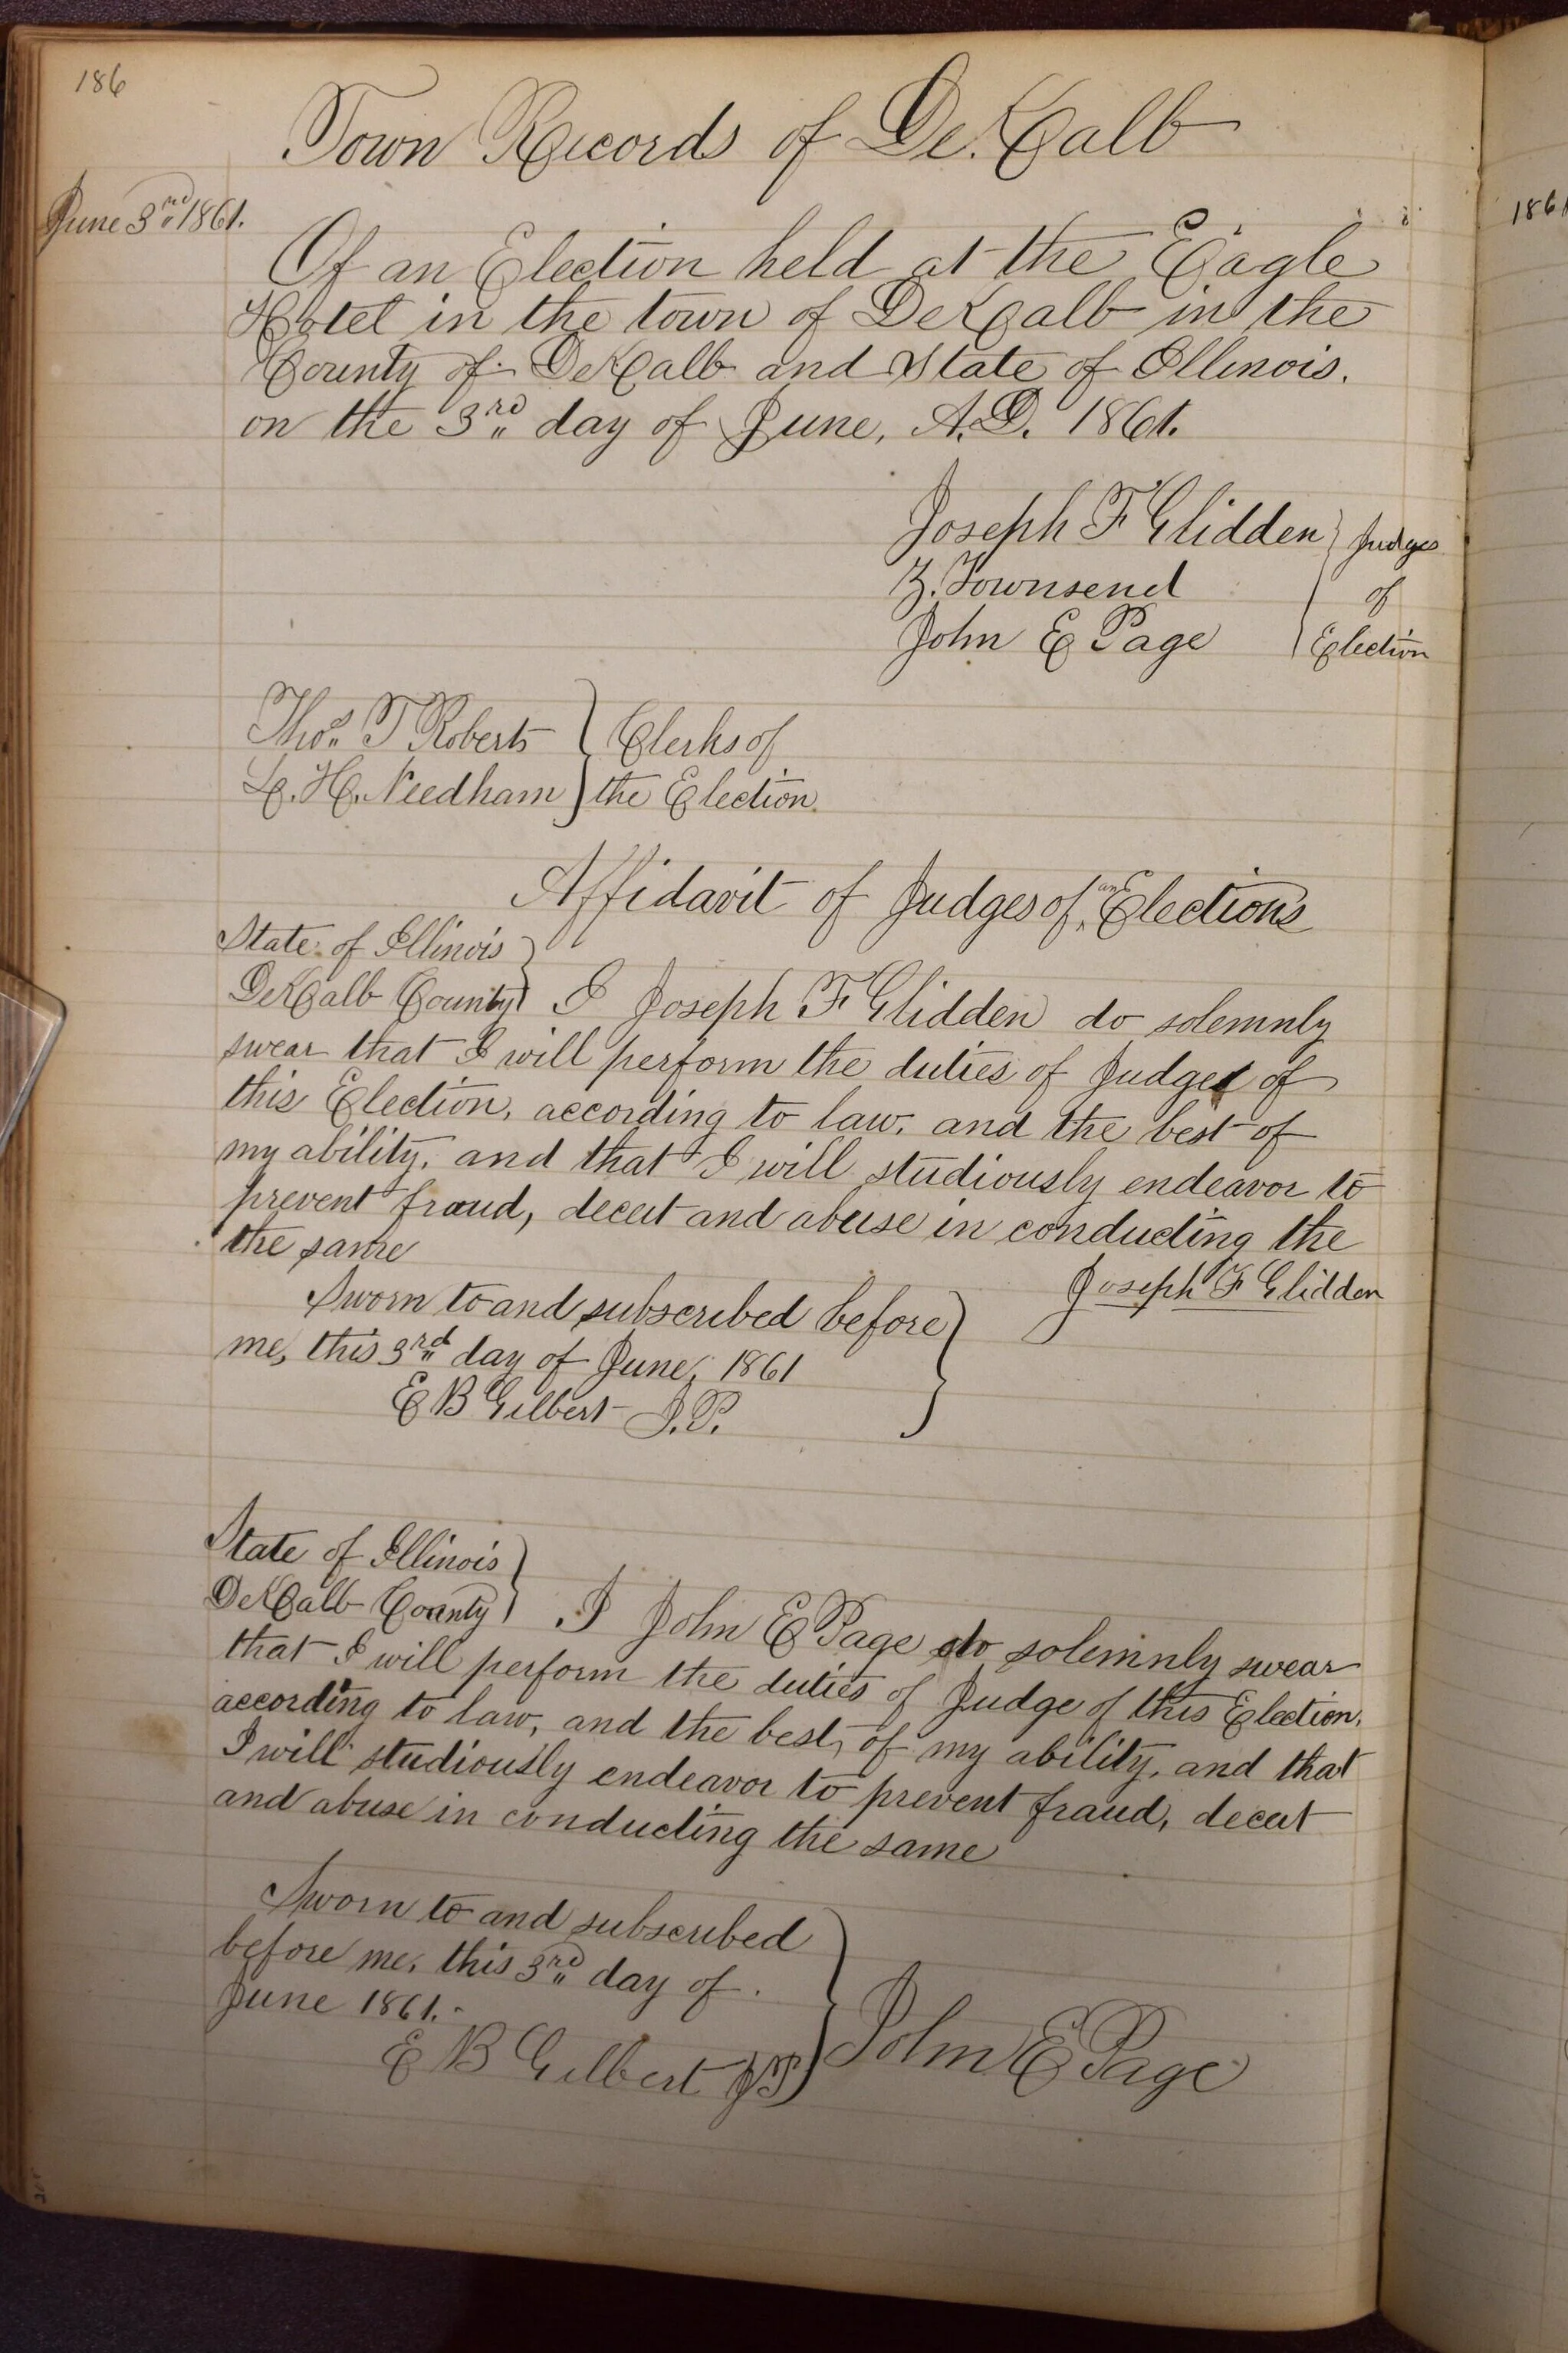 186
Town Records of De.Kalb
June 3rd 1861.
1861
Of an Election held at the Eagle
Hotel in the town of DeKalb in the
County of DeKalb and State of Illinois.
on the 3rd day of June, A.D. 1861.
Joseph F Glidden } Judges
Z. Townsend of
John E Page Election
Thos. T Roberts } Clerks of
L. H. Needham } the Election
Affidavit of Judges of an Elections
State of Illinois }
DeKalb County } I Joseph F Glidden do solemnly
swear that I will perform the duties of Judge of
this Election, according to law, and the best of
my ability, and that I will studiously endeavor to
prevent fraud, deceit and abuse in conducting the
the same
Joseph F Glidden
Sworn to and subscribed before }
me, this 3rd day of June, 1861
E B Gilbert J.P.
State of Illinois }
DeKalb County } I John E Page do solemnly swear
that I will perform the duties of Judge of this Election,
according to law, and the best, of my ability, and that
I will studiously endeavor to prevent fraud, deceit
and abuse in conducting the same
Sworn to and subscribed }
before me, this 3rd day of
June 1861.
E B Gilbert JP } John E Page